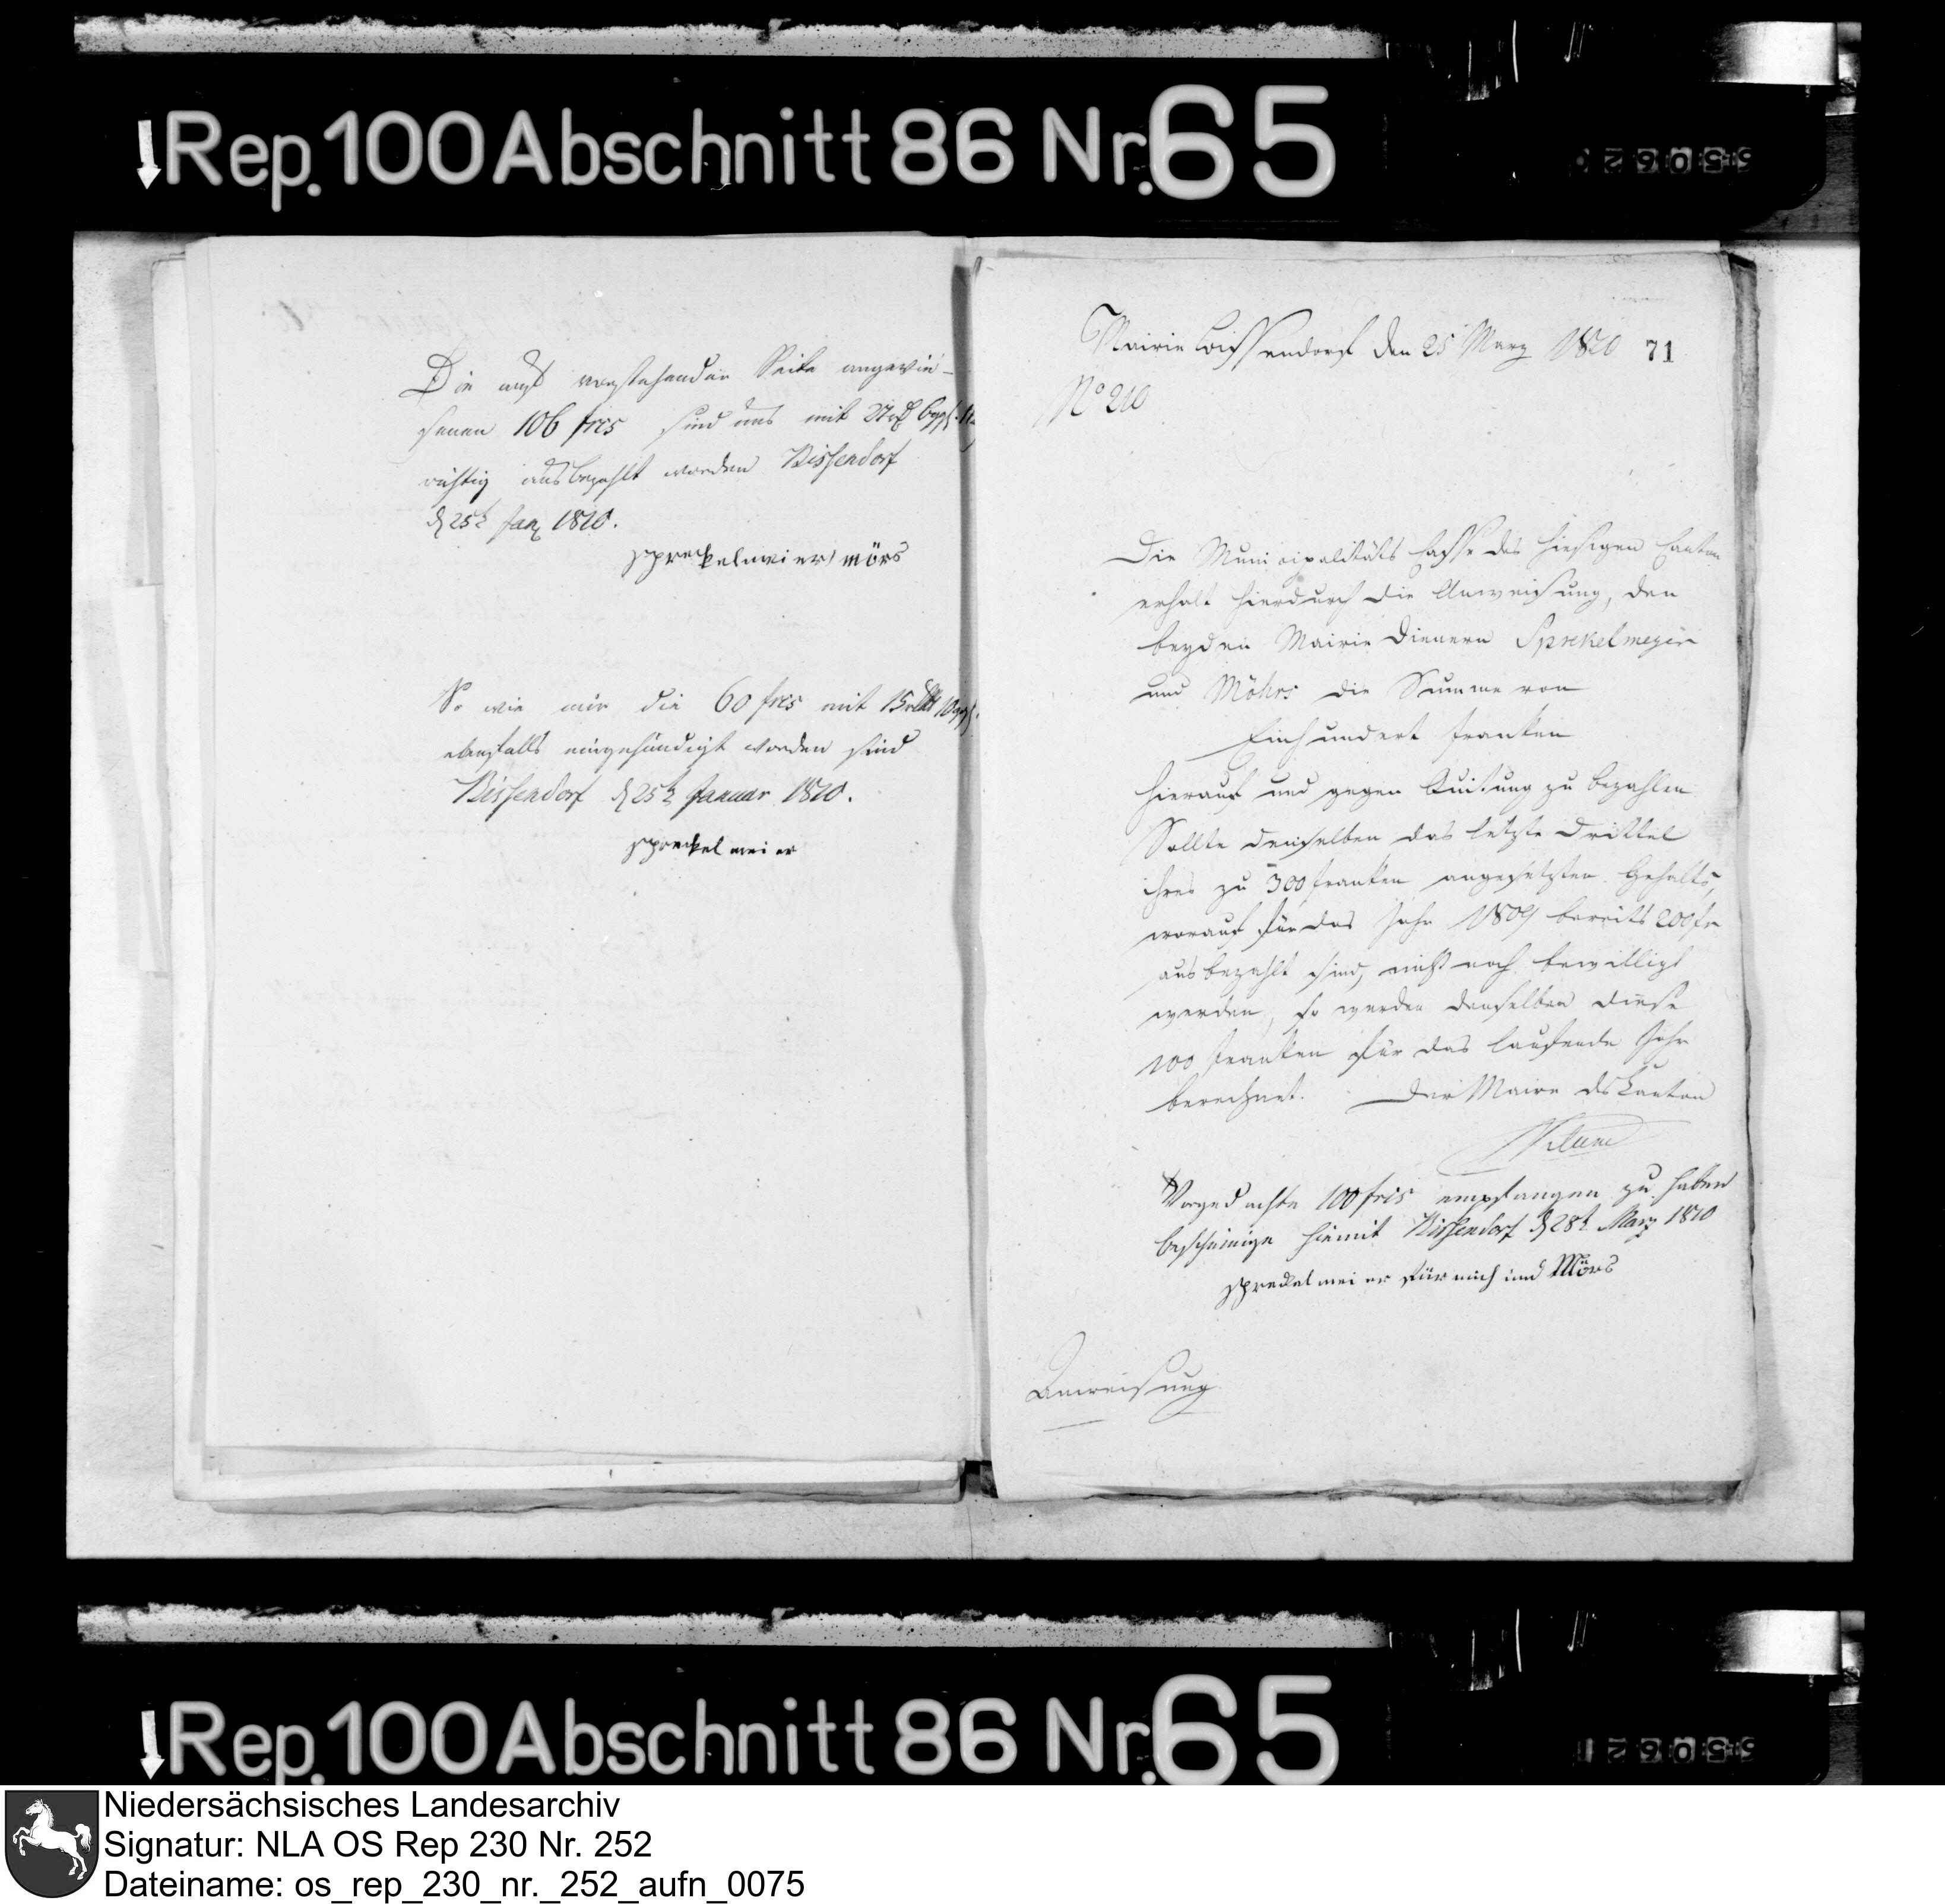 Rep. 100 Abschnitt 86 Nr. 65
Die auf vorstehender Seite angewie-
senen 106 frcs sind uns mit
richtig ausbezahlt worden Bissendorf
d 25t Jan 1810.
spreckelmeier mörs
So wie mir die 60 frcs mit 15
ebenfalls eingehändigt worden sind
Bissendorf d 25t Januar 1810.
spreckelmeier
Mairie Bissendorf den 25 Marz 1810
71
No 210
Die Municipalitäts Casse des hiesigen Canton
erhalt hierdurch die Anweisung, den
beyden Mairie Dienern Sprekelmeyer
und Möhrs die Summe von
Einhundert Franken
hierauf und gegen Quitung zu bezahlen
Sollte denselben das letzte Drittel
ihres zu 300 Franken angesetzten Gehalts,
worauf für das Jahr 1809 bereits 200 fr
ausbezahlt sind, nicht noch bewilligt
werden, so werden denselben diese
100 Franken für das laufende Jahr
berechnet. Der Maire des Canton
Vorgedachte 100 frcs empfangen zu haben
bescheinige hiemit Bissendorf d 28t Marz 1810
spreckelmeier für mich und Mörs
Anweisung
Rep. 100 Abschnitt 86 Nr. 65
Niedersächsisches Landesarchiv
Signatur: NLA OS Rep 230 Nr. 252
Dateiname: os_rep_230_nr._252_aufn_0075